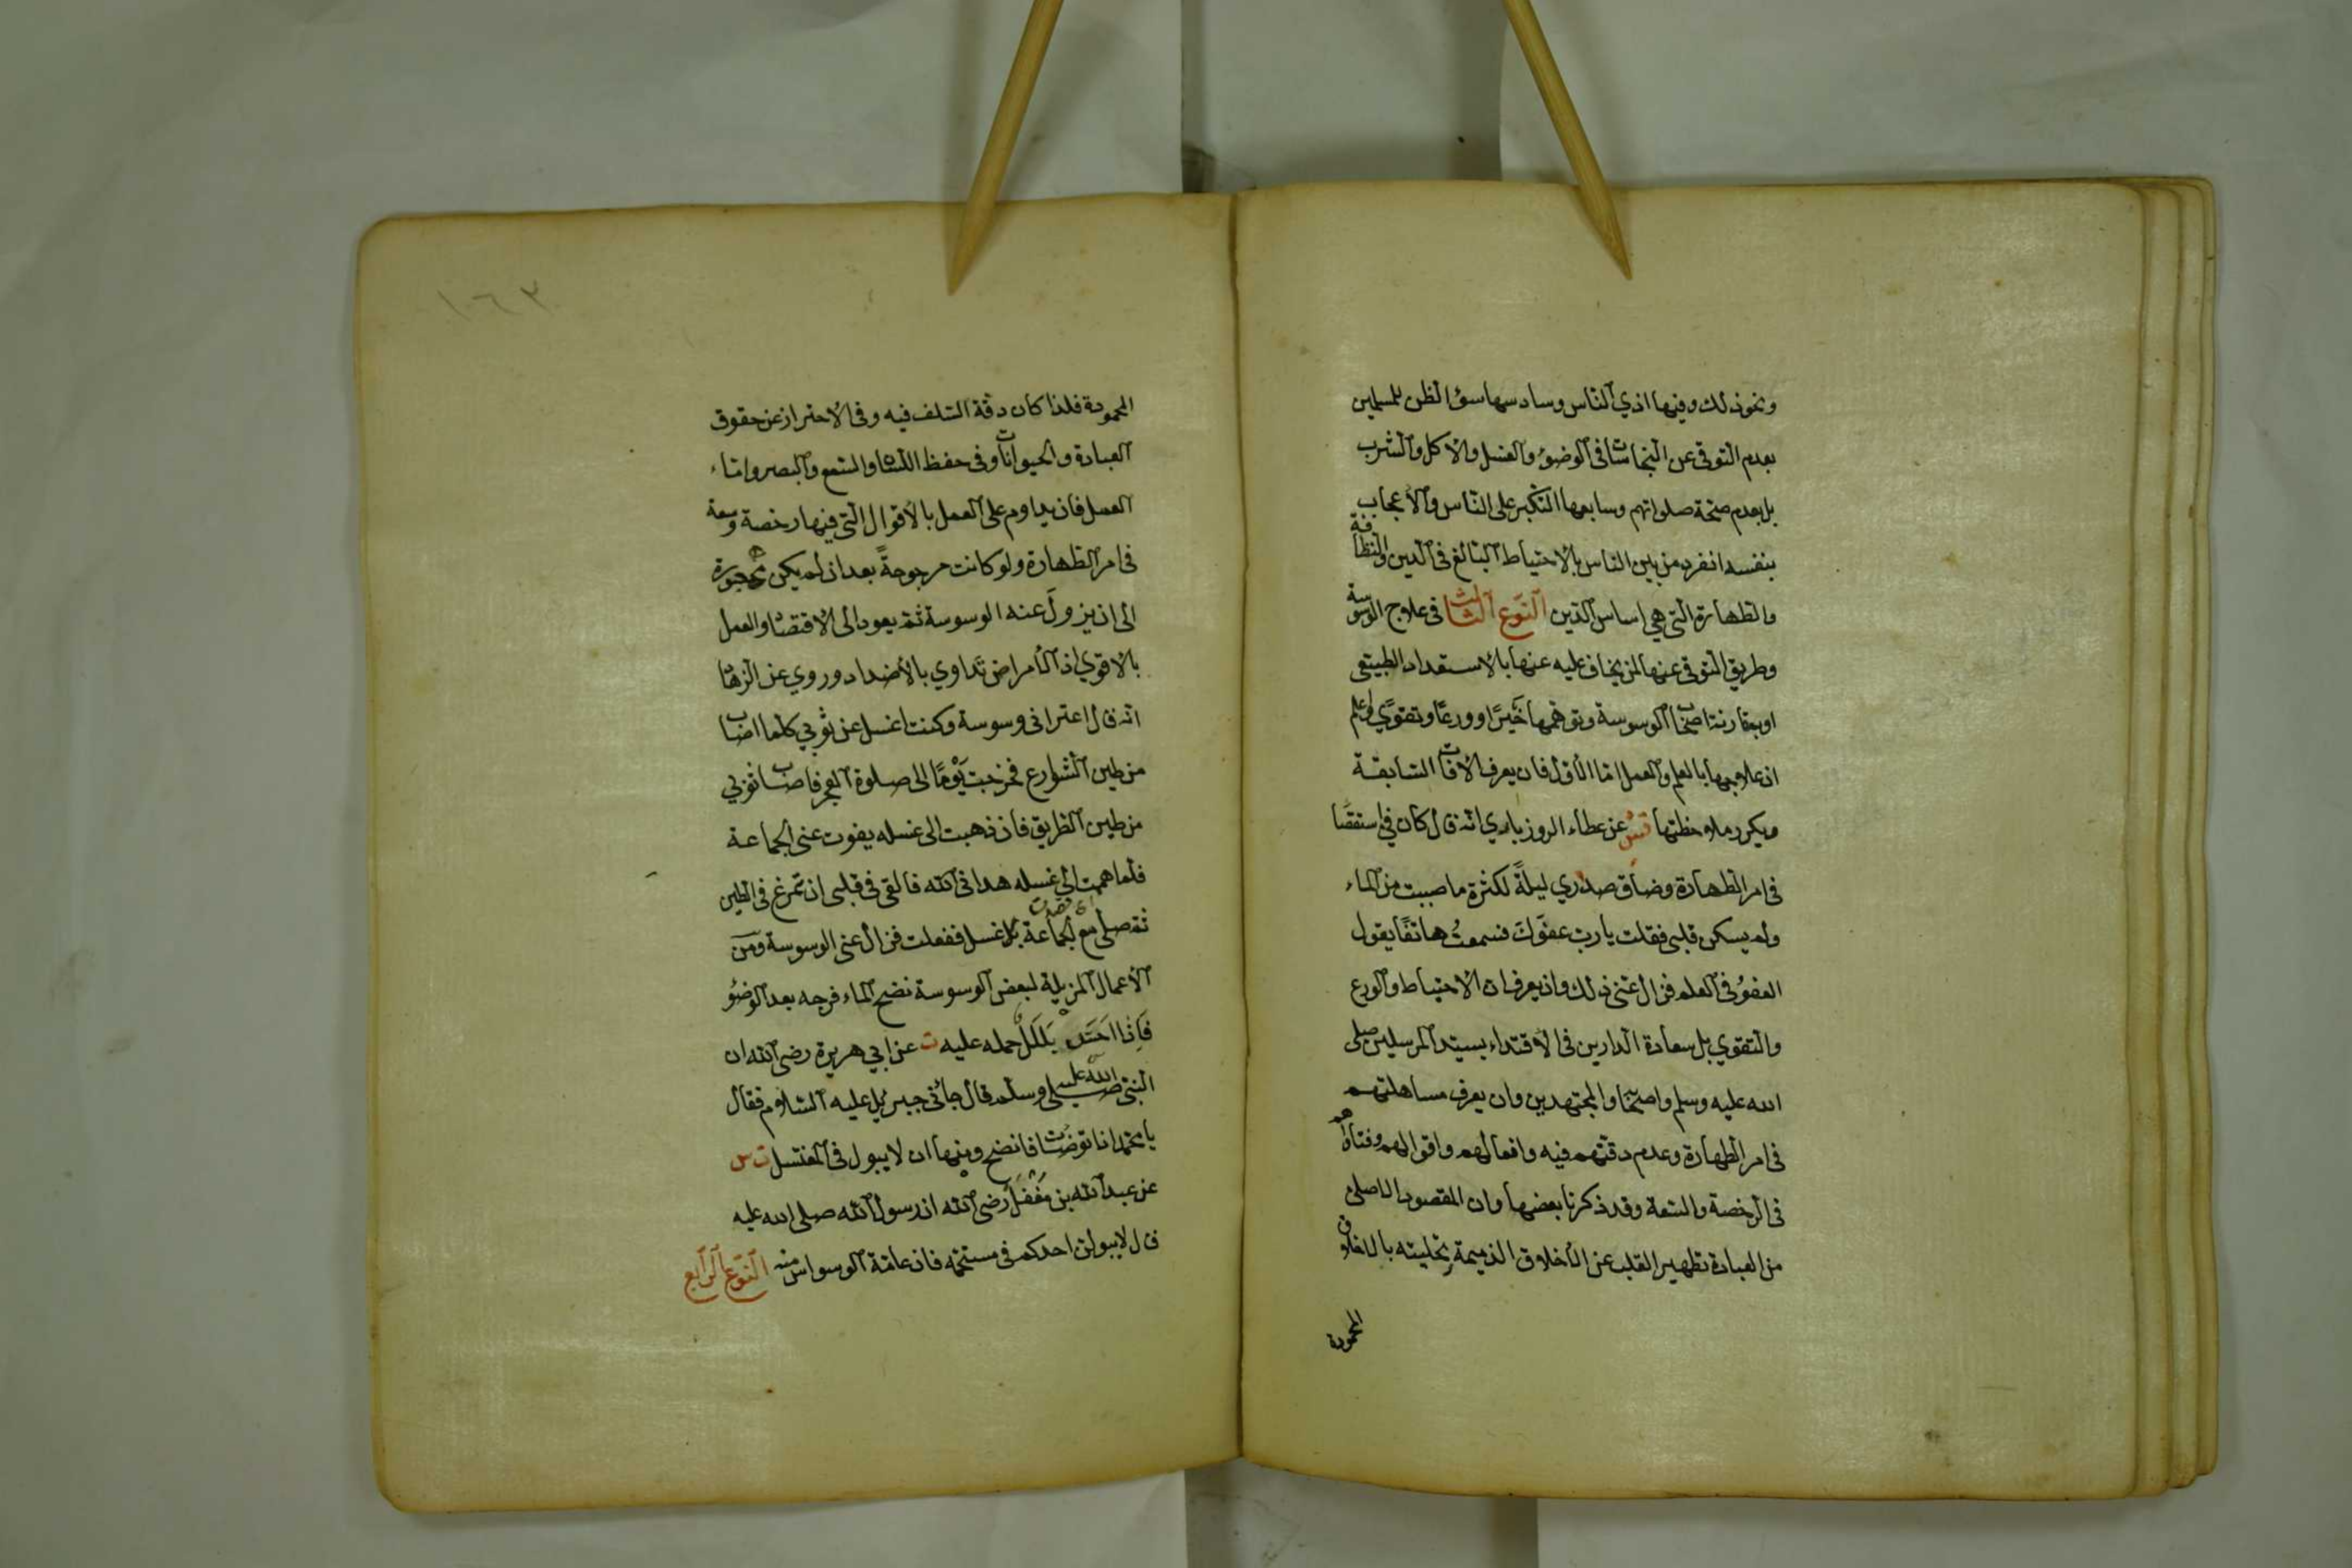 ونحو ذلك وفيها اذي الناس وسادسها سؤ الظن للمسلمين
بعدم التوقى عن النجاسات فى الوضوء والغسل والاكل والشرب
بل بعدم صحة صلواتهم وسابعها التكبر على الناس والاعجاب
بنفسه انفرد من بين الناس بالاحتياط البالغ فى الدين والنظافة
والطهارة التى هي اساس الدين النوع الثالث فى علاج الوسوسة
وطريق التوقى عنها لمن يخاف عليه عنها بالاستعداد الطبيعى
او بمقارنة اصحاب الوسوسة وتوهمها خيرًا وورعًا وتقوًي اعلم
ان علاجها بالعلم والعمل اما الاول فان يعرف الافات السابقة
ويكرر ملاحظتها قش عن عطاء الروزبادي انه قال كان في استقصا
فى امر الطهارة وضاق صدري ليلةً لكثرة ما صببت من الماء
ولم يسكن قلبى فقلت يا رب عفوَكَ فسمعتُ هاتفًا يقول
العفوُ فى العلم فزال عنى ذلك وان يعرف ان الاحتياط والورع
والتقوي بل سعادة الدارين فى الاقتداء بسيد المرسلين صلى
الله عليه وسلم واصحابه والمجتهدين وان يعرف مساهلتهم
فى امر الطهارة وعدم دقتهم فيه وافعالهم واقوالهم وفتاواهم
فى الرخصة والسعة وقد ذكرنا بعضها وان المقصود الاصلى
من العبادة تطهير القلب عن الأخلاق الذميمة وتحليته بالاخلاق
المحمودة
١٦٣
المحمودة فلذا كان دقة السلف فيه وفى الاحتراز عن حقوق
العبادة والحيوانات وفى حفظ اللسان والسمع والبصر واما
العمل فان يداوم على العمل بالأقوال التى فيها رخصة وسعة
فى امر الطهارة ولو كانت مرجوحةً بعد ان لم يكن مهجورة
الى ان يزولَ عنه الوسوسة ثم يعود الى الاقتصاد والعمل
بالاقوي اذ الأمراض تداوي بالأضداد وروي عن الزهاد
انه قال اعترانى وسوسة وكنت اغسل عن ثوبي كلما اصاب
من طين الشوارع فخرجت يَوْمًا الى صلوة الفجر فاصاب ثوبي
من طين الطريق فان ذهبت الى غسله يفوت عنى الجماعة
فلما هممت الي غسله هدانى الله فالقى فى قلبى ان تمرغ فى الطين
ثم صلى مع الجماعة بلا غسل ففعلت فزال عنى الوسوسة ومن
الأعمال المزيلة لبعض الوسوسة نضح الماء فرجه بعد الوضؤ
فاذا احس بللا حمله عليه ت عن ابي هريرة رضى الله ان
النبى صلى الله عليه وسلم قال جائنى جبرئيل عليه السلام فقال
يا محمد اذا توضأت فانضح ومنها ان لا يبول فى المغتسل ت س
عن عبد الله بن مغفل رضى الله ان رسول الله صلى الله عليه
قال لا يبولن احدكم فى مستحمه فان عامة الوسواس منه النوع الرابع